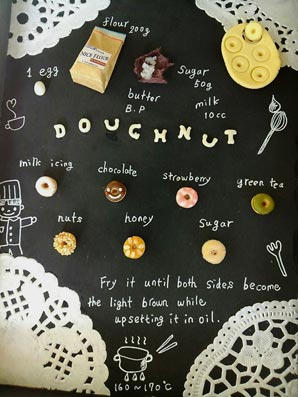 flour 200g
RICE FLOUR
1 egg
Sugar
50g
butter
B.P
milk
10cc
DOUGHNUT
milk icing
chocolate
strawberry
green tea
nuts
honey
Sugar
Fry it until both sides become
the light brown while
upsetting it in oil.
160~170℃